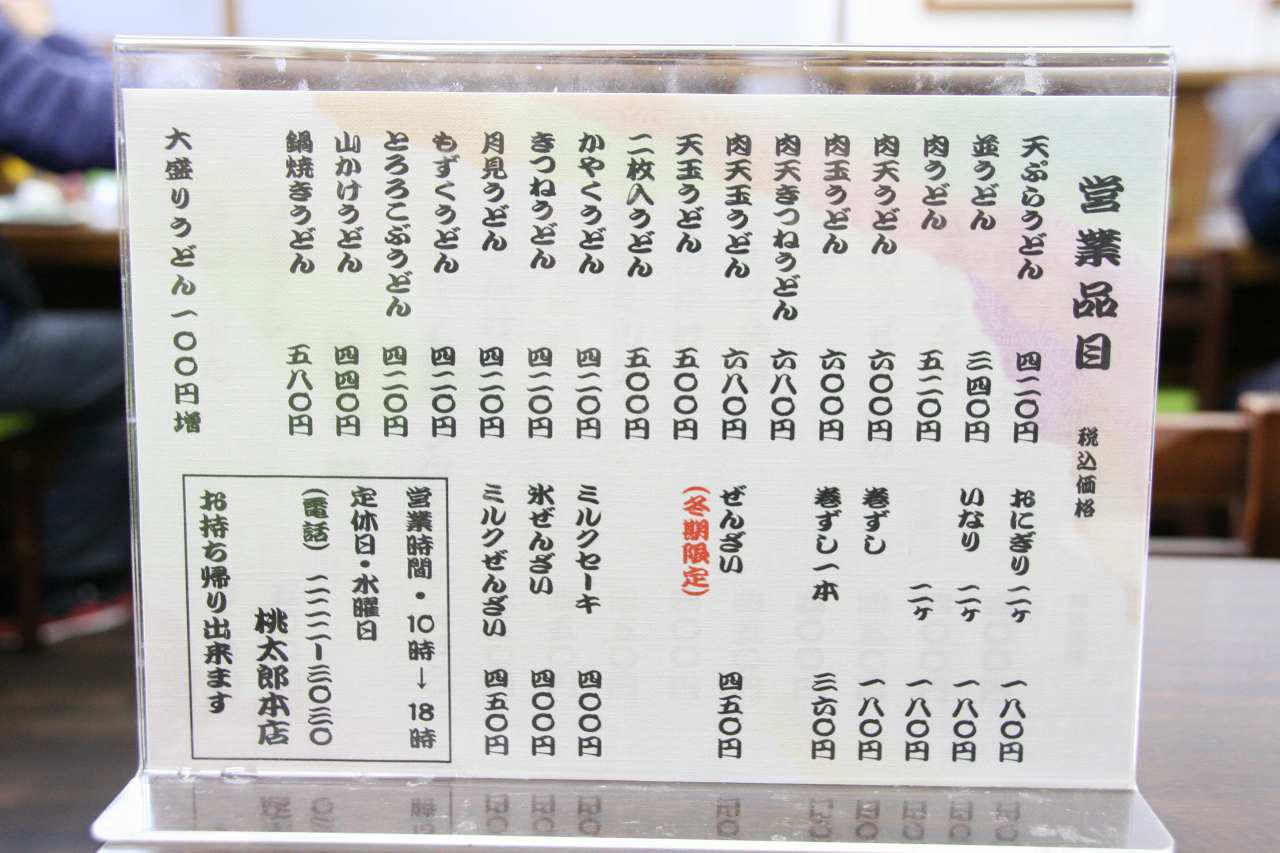 営業品目 税込価格
天ぷらうどん 四二〇円
並うどん 三四〇円
肉うどん 五二〇円
肉天うどん 六〇〇円
肉玉うどん 六〇〇円
肉天きつねうどん 六八〇円
肉天玉うどん 六八〇円
天玉うどん 五〇〇円
二枚入うどん 五〇〇円
かやくうどん 四二〇円
きつねうどん 四二〇円
月見うどん 四二〇円
もずくうどん 四二〇円
とろろこぶうどん 四二〇円
山かけうどん 四四〇円
鍋焼きうどん 五八〇円
大盛りうどん一〇〇円増
おにぎり 二ヶ 一八〇円
いなり 二ヶ 一八〇円
二ヶ 一八〇円
巻ずし 一八〇円
巻ずし一本 三六〇円
ぜんざい 四五〇円
(冬期限定)
ミルクセーキ 四〇〇円
氷ぜんざい 四〇〇円
ミルクぜんざい 四五〇円
営業時間・10時→18時
定休日・水曜日
(電話) 二二二ー三〇三〇
桃太郎本店
お持ち帰り出来ます